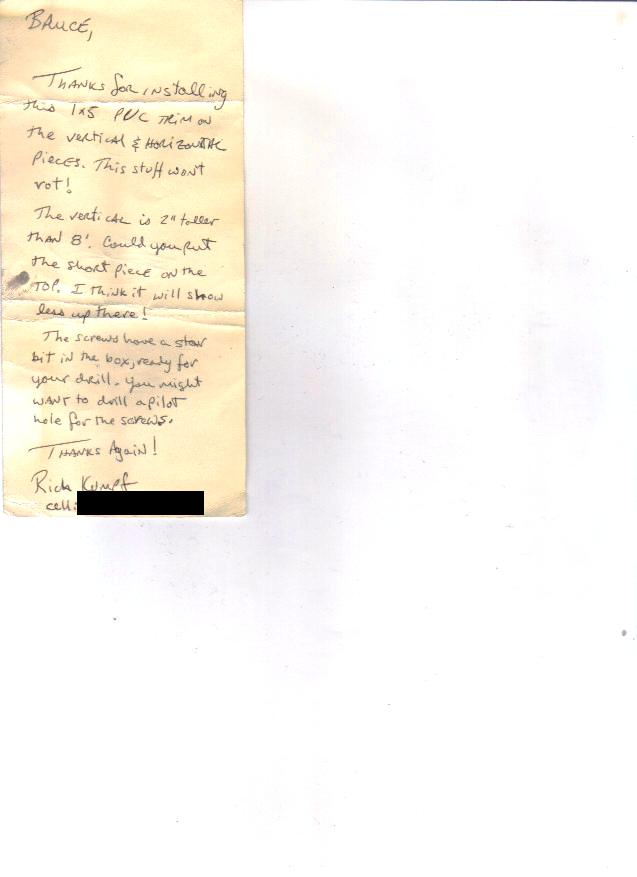 BRUCE,
THANKS for installing
this 1x5 PVC TRIM on
the vertical & HORIZONTAL
PIECES. This stuff won't
rot!
The vertical is 2" taller
than 8'. Could you put
the short piece on the
TOP. I think it will show
less up there!
The screws have a star
bit in the box, ready for
your drill. You might
WANT to drill a pilot
hole for the screws.
THANKS Again!
Rick Kumpf
cell: